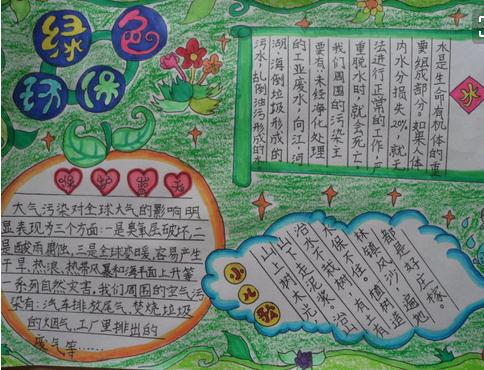 绿色
环保
水
水是生命有机体的重
要组成部分。如果人体
内水分损失20%,就无
法进行正常的工作,严
重脱水时,就会死亡。
我们周围的污染主
要有:未经净化处理
的工业废水,向江、河、
湖、海倒垃圾形成的
污水,乱倒油污形成的水
保护蓝天
大气污染对全球大气的影响明
显表现为三个方面:一是臭氧层破坏,二
是酸雨腐蚀,三是全球变暖,容易产生
干旱、热浪、热带风暴和海平面上升等
一系列自然灾害,我们周围的空气污
染有:汽车排放尾气,焚烧垃圾
的烟气,工厂里排出的
废气等……
小儿歌
都是好庄稼。